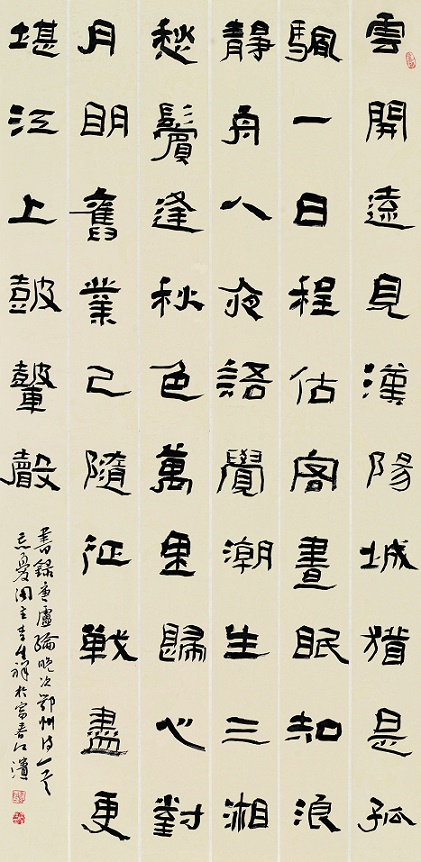 雲開遠見漢陽城猶是孤
颿一日程估客晝眠知浪
靜舟人夜語覺潮生三湘
愁鬢逢秋色萬里歸心對
月明舊業已隨征戰盡更
堪江上鼓鼙聲
書錄唐盧綸晚次鄂州詩一首
主李生祥於富春江濱